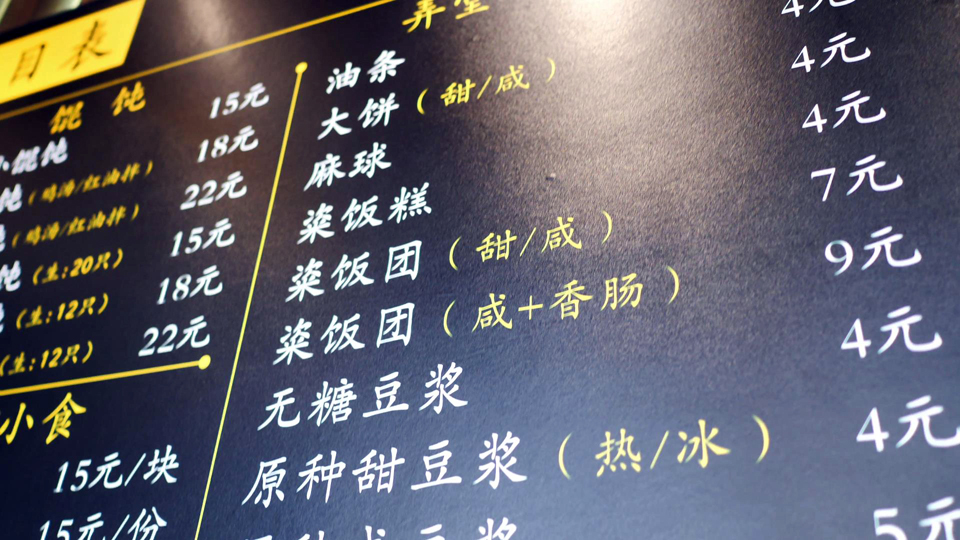 目表
馄饨
小馄饨 15元
饨(鸡汤/红油拌) 18元
(鸡汤/红油拌) 22元
饨(生:20只) 15元
(生:12只) 18元
(生:12只) 22元
小食
15元/块
15元/份
弄堂
油条 4元
大饼(甜/咸) 4元
麻球 4元
粢饭糕 4元
粢饭团(甜/咸) 7元
粢饭团(咸+香肠) 9元
无糖豆浆 4元
原种甜豆浆(热/冰) 4元
原种咸豆浆 5元